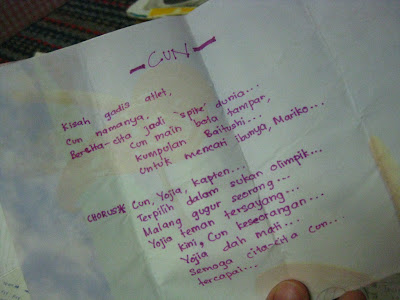 - CUN -
Kisah gadis atlet,
Cun namanya,
Bercita-cita jadi 'spike' dunia...
Cun main bola tampar,
kumpulan Baitushi...
Untuk mencari ibunya, Mariko...
CHORUS* Cun, Yojia, kapten...
Terpilih dalam sukan olimpik...
Malang gugur seorang...
Yojia teman tersayang...
kini, Cun keseorangan...
Yojia dah mati...
semoga cita-cita cun...
tercapai...